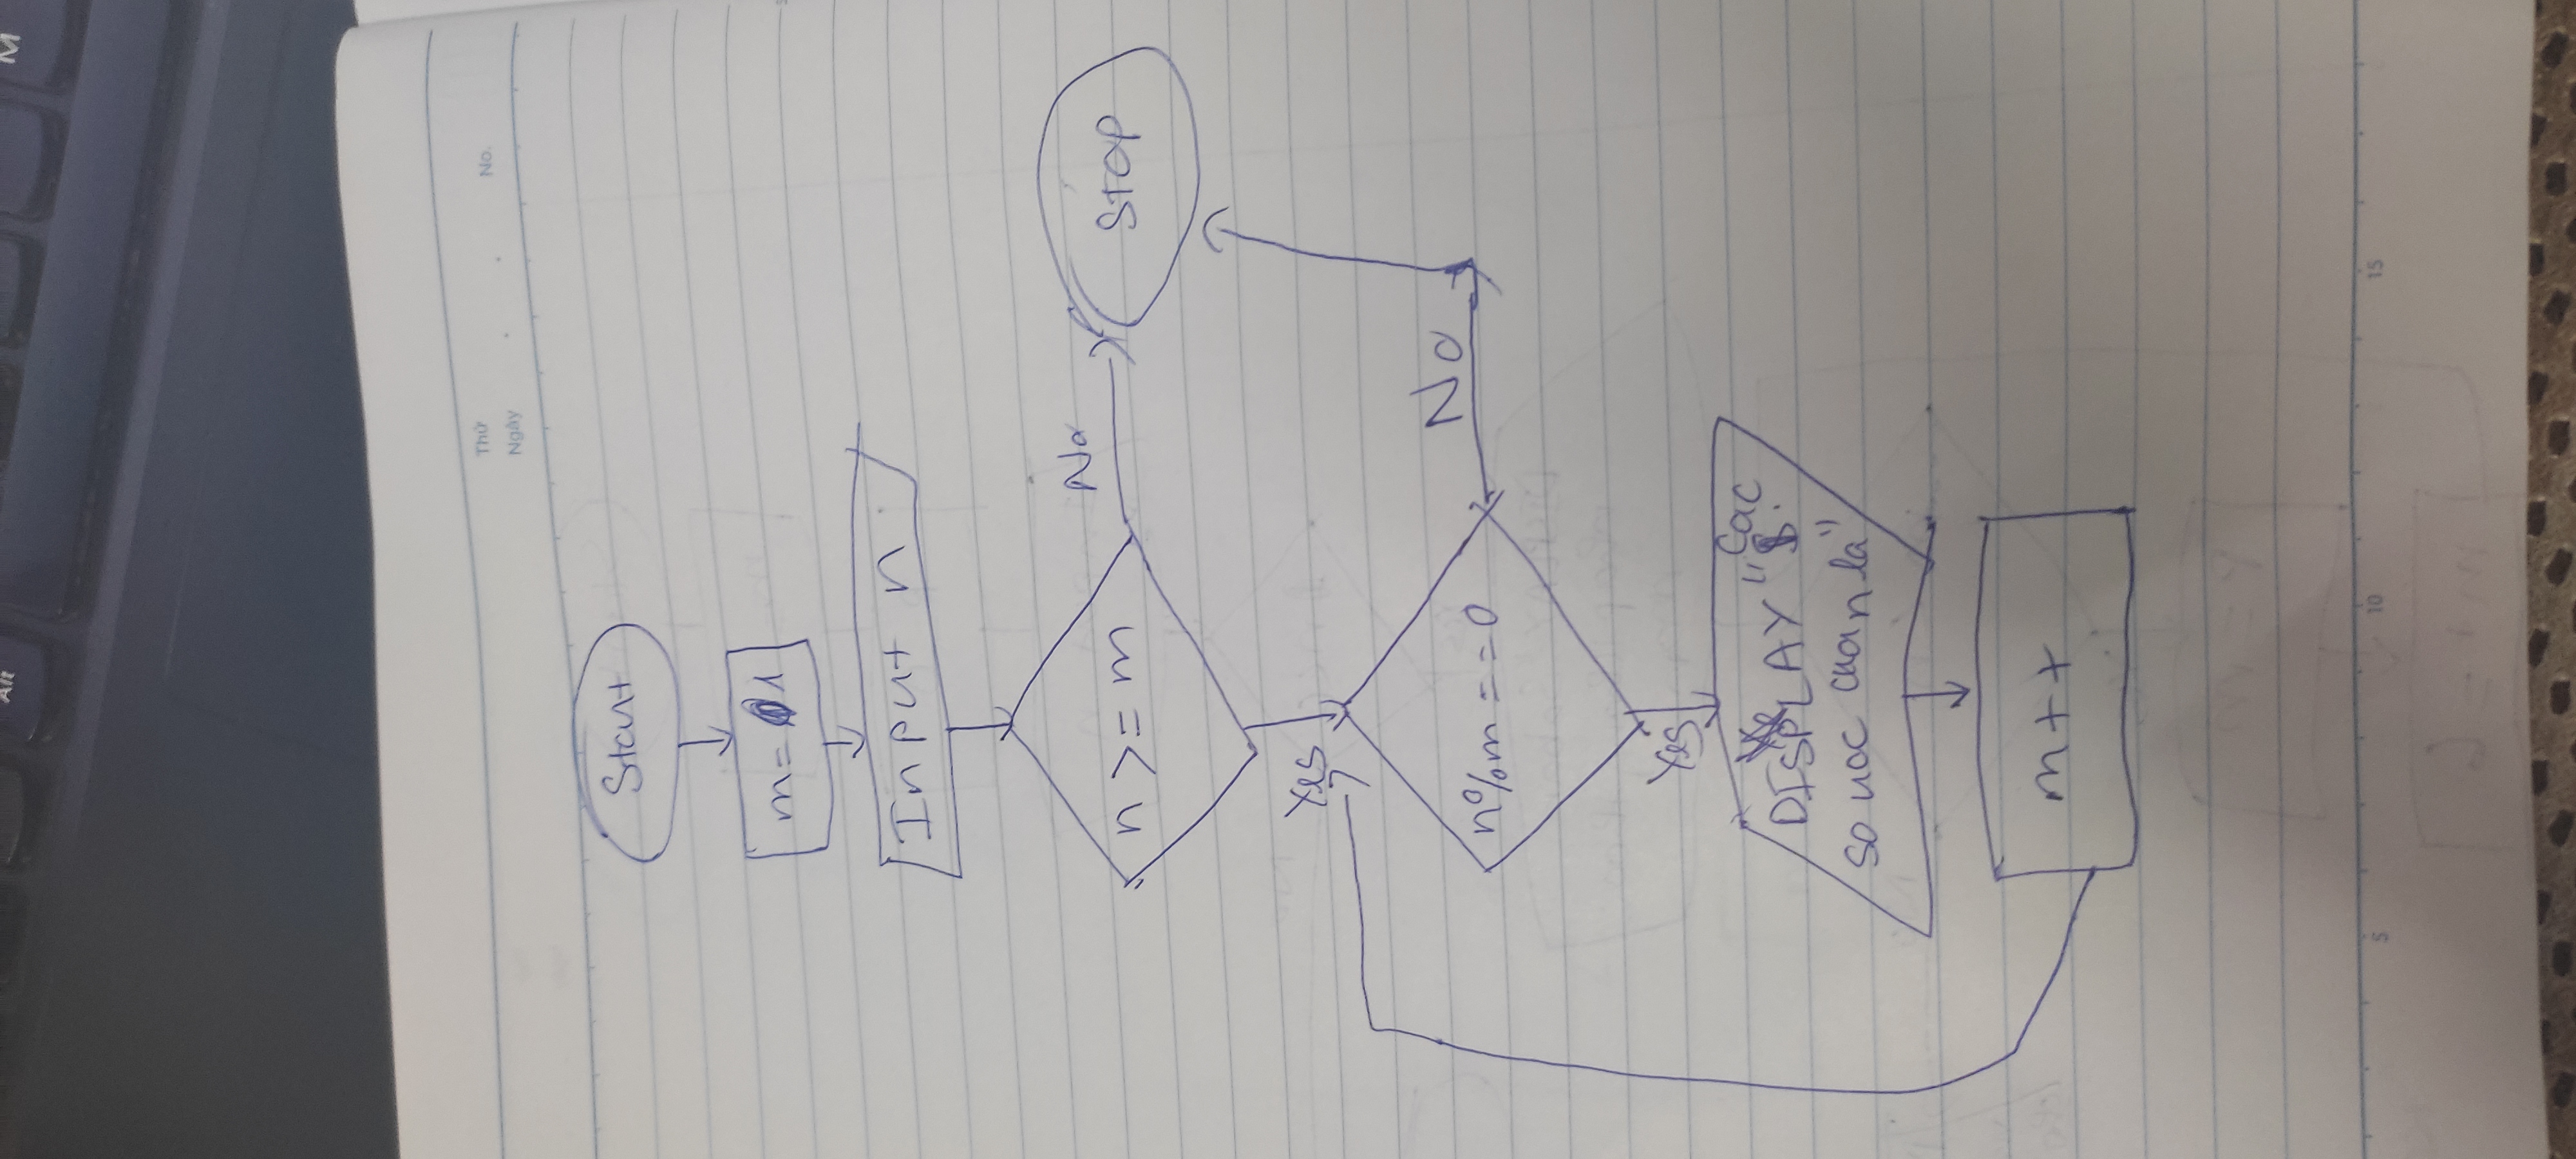 Alt
M
Thứ
Ngày
No.
Start
m= 1
Input n
n >= m
No
Stop
Yes
n%m = =0
No
Yes
DISPLAY "Cac
so uoc
la"
m++
5
10
15